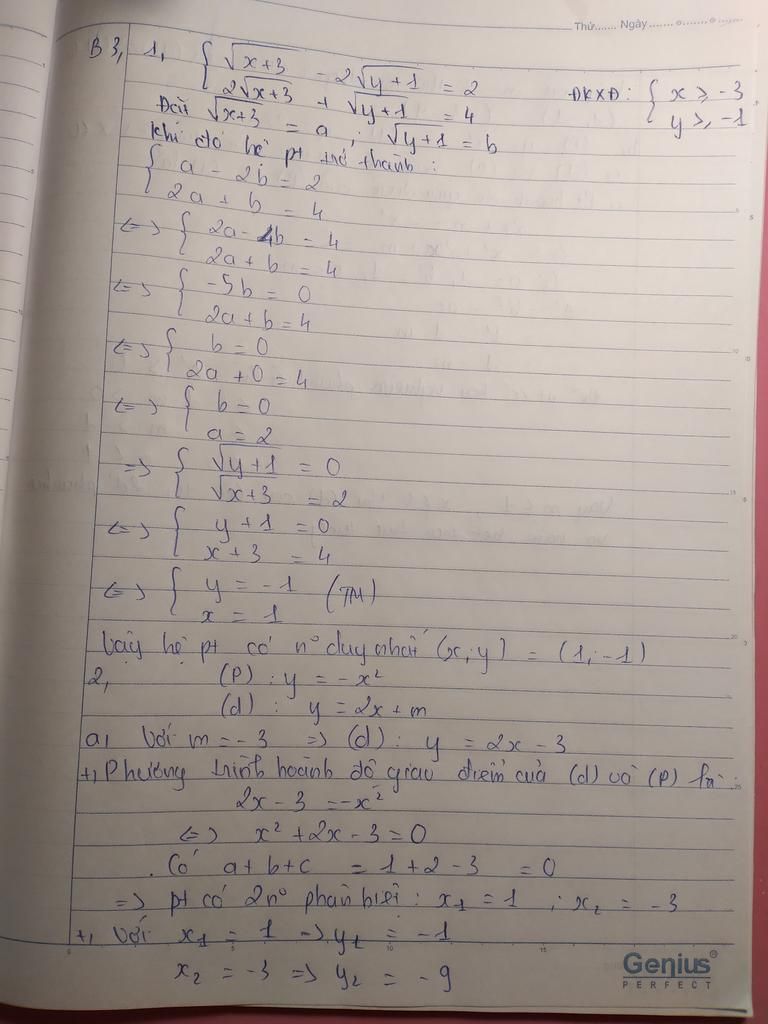 Thứ....... Ngày ........
B3, 1, { √(x+3) - 2√(y+1) = 2
2√(x+3) + √(y+1) = 4 ĐKXĐ: { x ≥ -3
y ≥ -1
Đặt √(x+3) = a ; √(y+1) = b
Khi đó hệ pt trở thành:
{ a - 2b = 2
2a + b = 4
<=> { 2a - 4b = 4
2a + b = 4
<=> { -5b = 0
2a + b = 4
<=> { b = 0
2a + 0 = 4
<=> { b = 0
a = 2
=> { √(y+1) = 0
√(x+3) = 2
<=> { y + 1 = 0
x + 3 = 4
<=> { y = -1 (TM)
x = 1
Vậy hệ pt có n° duy nhất (x;y) = (1;-1)
2, (P): y = -x²
(d): y = 2x + m
a, Với m = -3 => (d): y = 2x - 3
+, Phương trình hoành độ giao điểm của (d) và (P) là:
2x - 3 = -x²
<=> x² + 2x - 3 = 0
. Có a + b + c = 1 + 2 - 3 = 0
=> pt có 2 n° phân biệt: x₁ = 1 ; x₂ = -3
+, Với x₁ = 1 => y₁ = -1
x₂ = -3 => y₂ = -9
Genius
PERFECT